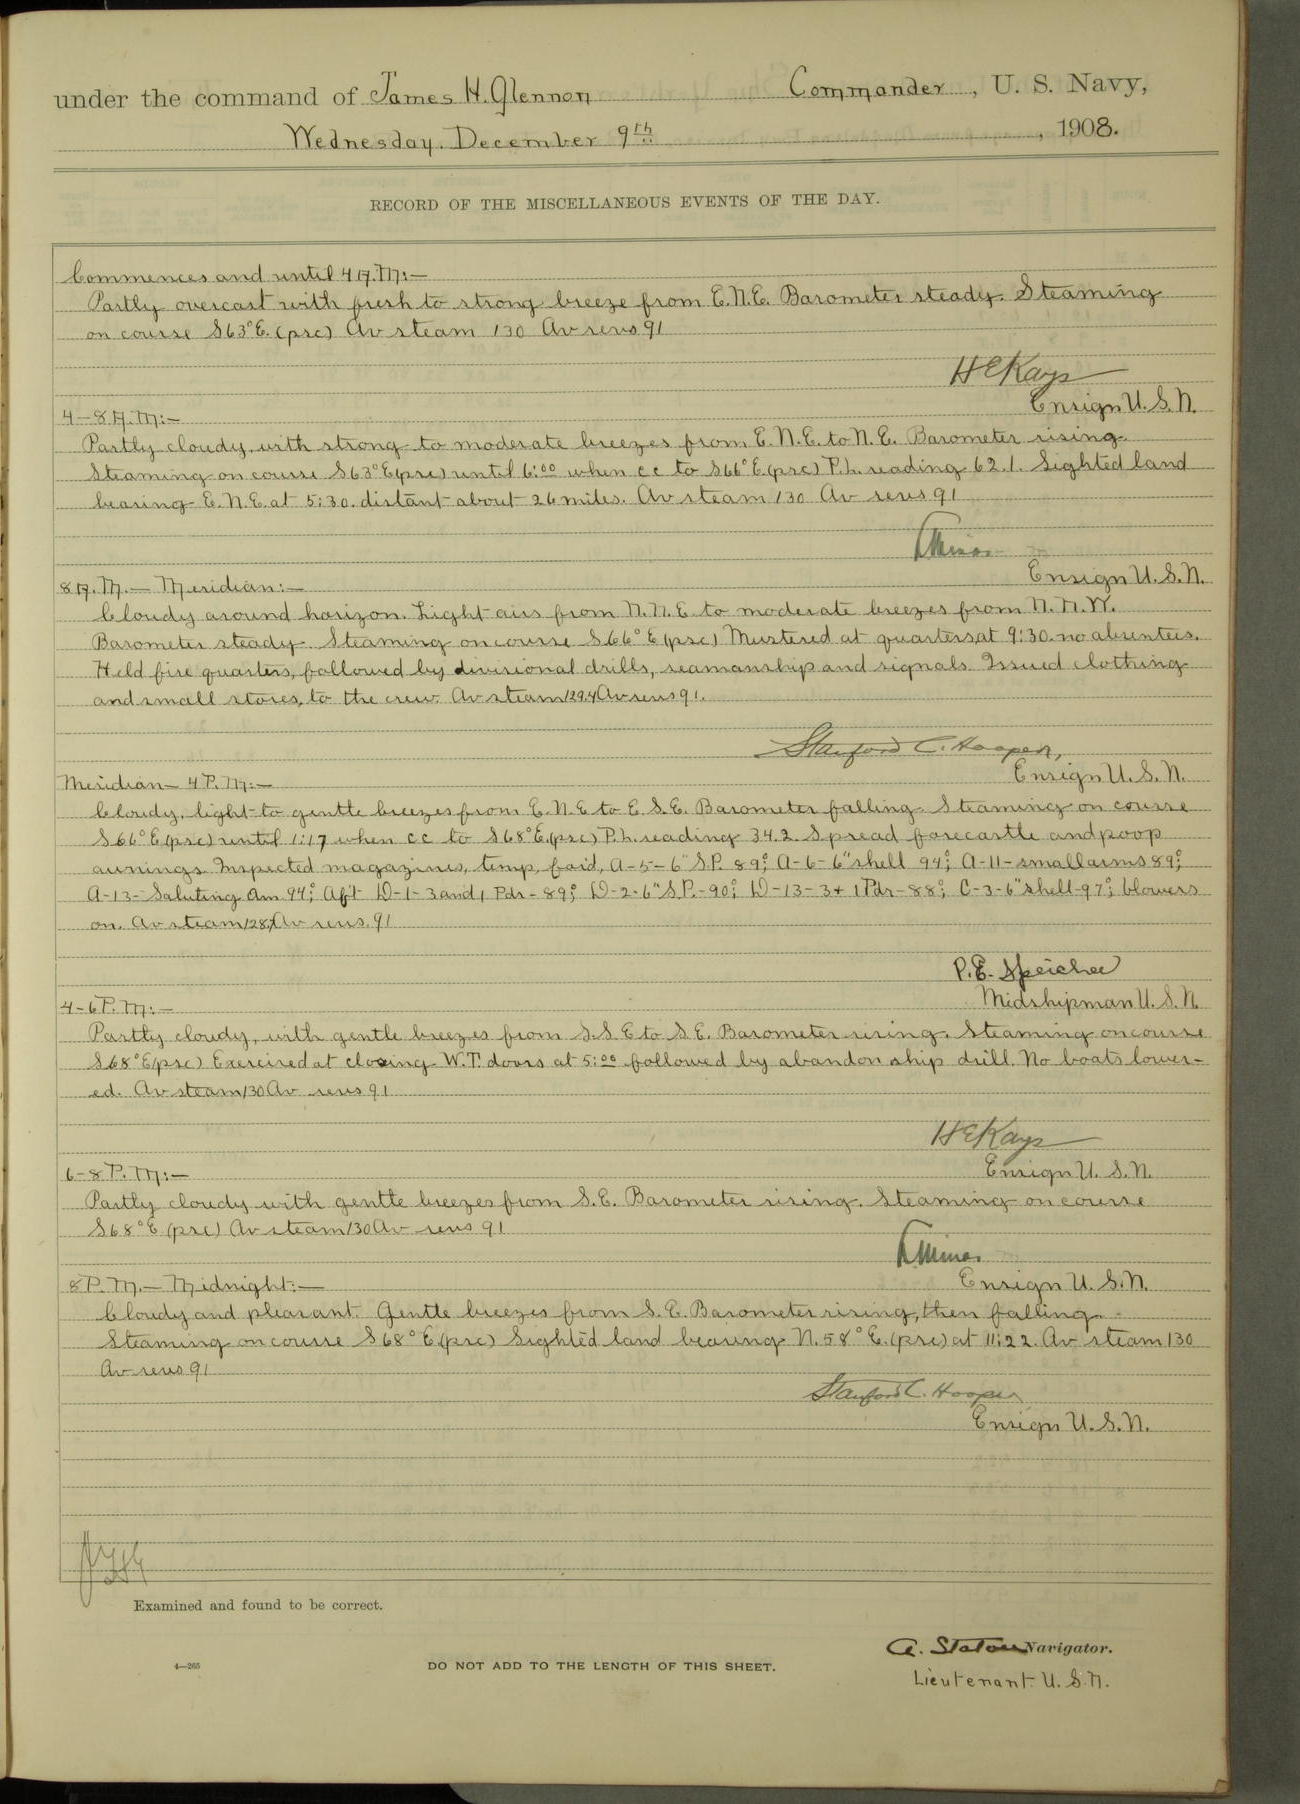 under the command of James H. Glennon Commander, U. S. Navy,
Wednesday. December 9th, 1908.
RECORD OF THE MISCELLANEOUS EVENTS OF THE DAY.
Commences and until 4 A.M:—
Partly overcast with fresh to strong breeze from E.N.E. Barometer steady. Steaming
on course S63°E.(psc) Av steam 130 Av revs 91
H E Kays
Ensign U.S.N.
4-8 A.M:—
Partly cloudy, with strong to moderate breezes from E.N.E. to N.E. Barometer rising.
Steaming on course S63°E(psc) until 6:00 when cc to S66°E.(psc) P.L. reading 62.1. Sighted land
bearing E.N.E. at 5:30. distant about 26 miles. Av steam 130 Av revs 91
Ensign U.S.N.
8 A.M.— Meridian:—
Cloudy around horizon. Light airs from N.N.E to moderate breezes from N.N.W.
Barometer steady. Steaming on course S66°E(psc) Mustered at quarters, at 9:30. no absentees.
Held fire quarters, followed by divisional drills, seamanship and signals. Issued clothing
and small stores, to the crew. Av steam 129.4 Av revs 91.
Stanford C. Hooper,
Ensign U.S.N.
Meridian— 4 P.M:—
Cloudy, light to gentle breezes from E.N.E to E.S.E. Barometer falling. Steaming on course
S66°E(psc) until 1:17 when cc to S68°E.(psc) P.L. reading 34.2. Spread forecastle and poop
awnings. Inspected magazines, temp, ford, A-5-6" S.P. 89°; A-6-6" shell 94°; A-11-small arms 89°;
A-13- Saluting Am 94°; Aft D-1-3 and 1 Pdr-89°; D-2-6" S.P.-90°; D-13-3+1 Pdr-88°; C-3-6" shell-97°; blowers
on. Av steam 128, Av revs. 91
P.E. Speicher
Midshipman U.S.N.
4-6 P.M:—
Partly cloudy, with gentle breezes from S.S.E to S.E. Barometer rising. Steaming on course
S68°E(psc) Exercised at closing W.T. doors at 5:00 followed by abandon ship drill. No boats lower-
ed. Av steam 130 Av revs 91
H E Kays
Ensign U.S.N.
6-8 P.M:—
Partly cloudy with gentle breezes from S.E. Barometer rising. Steaming on course
S68°E (psc) Av steam 130 Av revs 91
Ensign U.S.N.
8 P.M.— Midnight:—
Cloudy and pleasant. Gentle breezes from S.E. Barometer rising, then falling.
Steaming on course S68°E(psc) Sighted land bearing N.58°E.(psc) at 11:22. Av steam 130
Av revs 91
Stanford C. Hooper
Ensign U.S.N.
Examined and found to be correct.
A. Staton Navigator.
4—265
DO NOT ADD TO THE LENGTH OF THIS SHEET.
Lieutenant U.S.N.